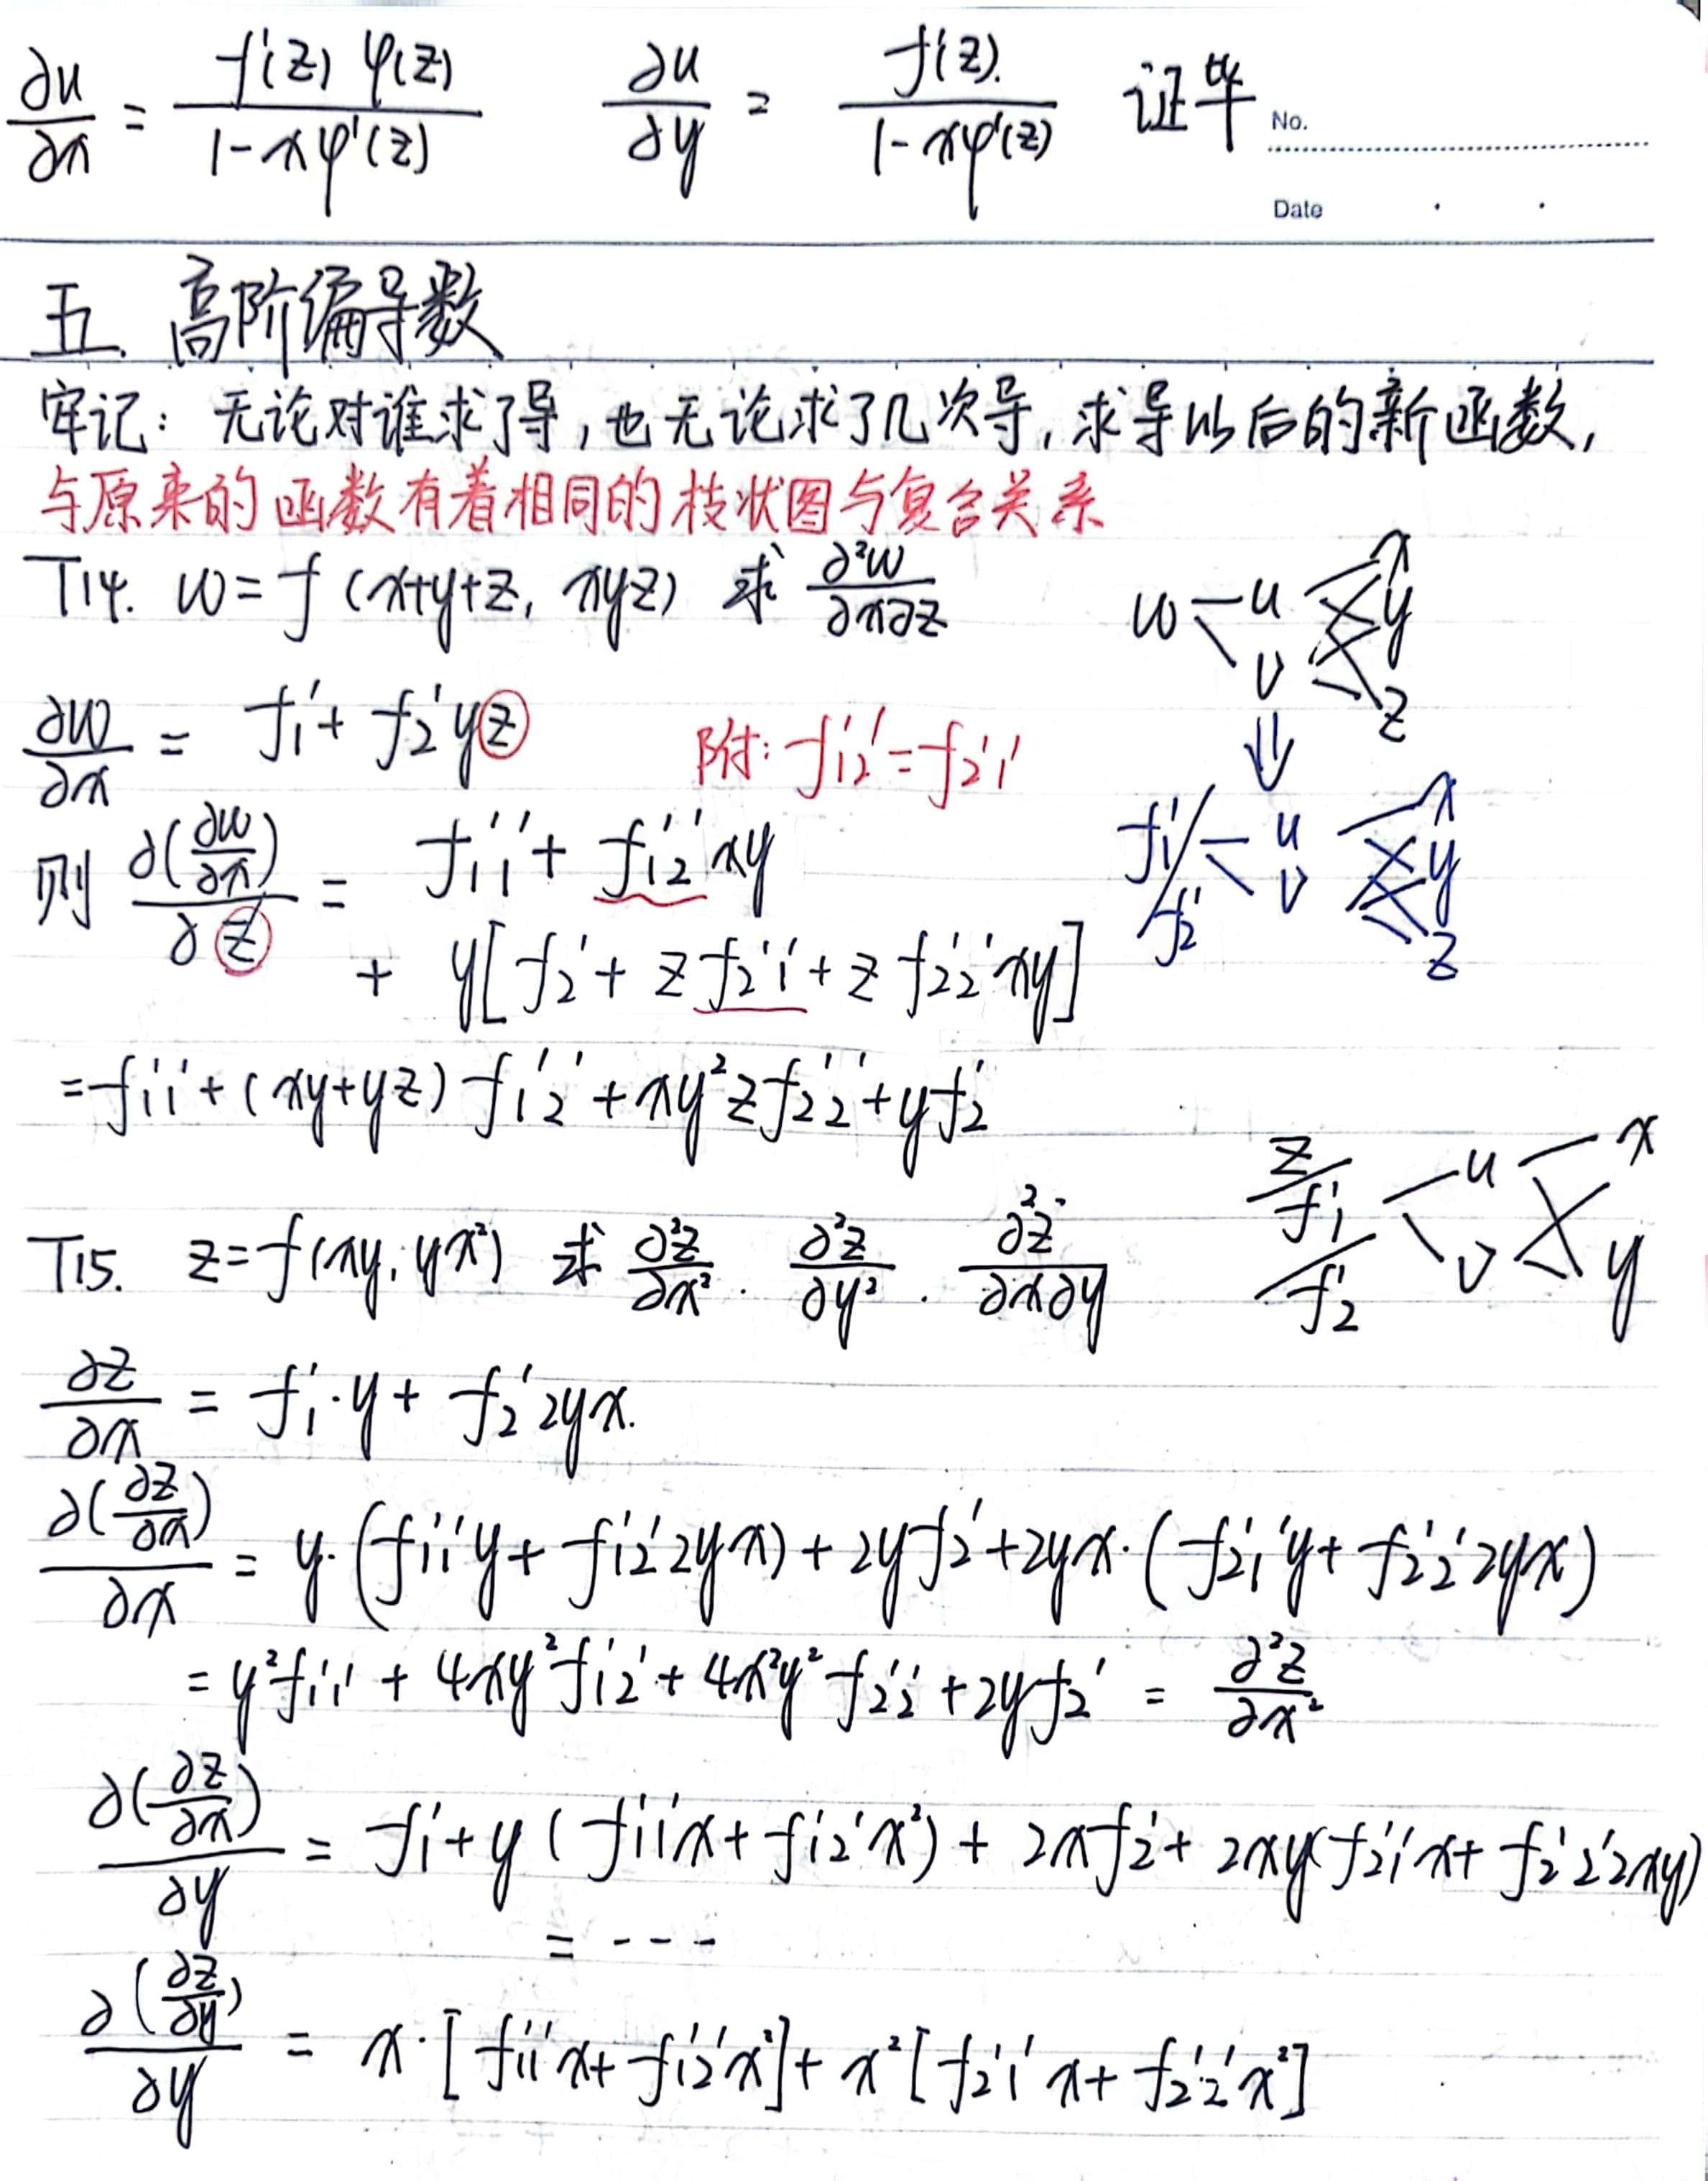 ∂u/∂x = f'(z) φ(z) / 1-xφ'(z)   ∂u/∂y = f'(z). / 1-xφ'(z)   证毕
No.
Date
五. 高阶偏导数
牢记：无论对谁求了导，也无论求了几次导，求导以后的新函数，
与原来的函数有着相同的枝状图与复合关系
T14. w=f(x+y+z, xyz) 求 ∂²w/∂x∂z
w u v x y z
∂w/∂x = f₁' + f₂'yz   附：f₁₂''=f₂₁''
⇓
f₁' f₂' u v x y z
则 ∂(∂w/∂x)/∂z = f₁₁'' + f₁₂''xy
+ y[f₂' + z f₂₁'' + z f₂₂''xy]
=f₁₁''+(xy+yz)f₁₂''+xy²zf₂₂''+yf₂'
z f₁' f₂' u v x y
T15. z=f(xy, yx²) 求 ∂²z/∂x² . ∂²z/∂y² . ∂²z/∂x∂y
∂z/∂x = f₁'·y + f₂'2yx.
∂(∂z/∂x)/∂x = y·(f₁₁''y + f₁₂''2yx)+2yf₂'+2yx·(f₂₁''y+f₂₂''2yx)
= y²f₁₁'' + 4xy²f₁₂'' + 4x²y²f₂₂'' + 2yf₂' = ∂²z/∂x²
∂(∂z/∂x)/∂y = f₁'+y(f₁₁''x+f₁₂''x²) + 2xf₂'+ 2xy(f₂₁''x+ f₂₂''2xy)
= ---
∂(∂z/∂y)/∂y = x·[f₁₁''x+f₁₂''x²]+ x²[f₂₁''x+ f₂₂''x²]